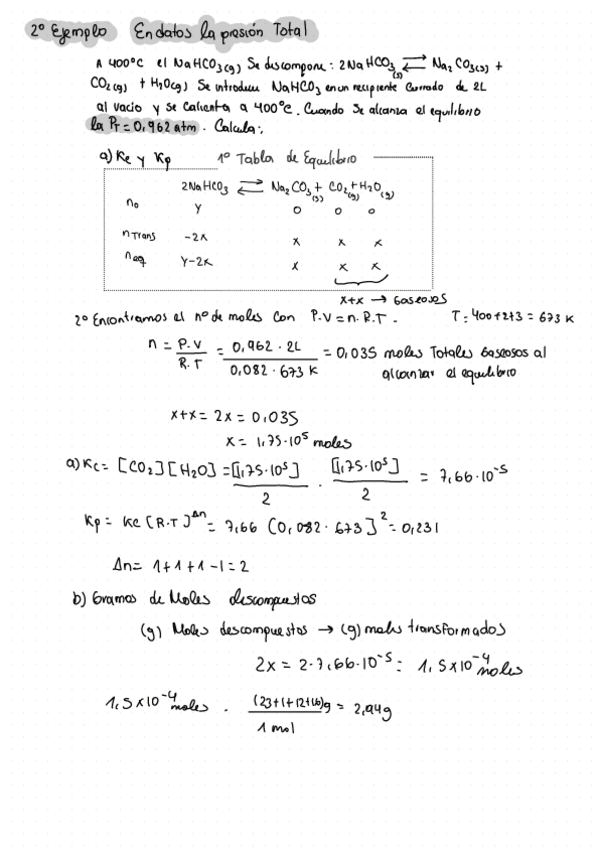 2º Ejemplo En datos la presión Total
A 400ºC el NaHCO3(g) Se descompone: 2NaHCO3(s) ⇄ Na2CO3(s) +
CO2(g) + H2O(g) Se introduce NaHCO3 en un recipiente cerrado de 2L
al vacio y se calienta a 400ºC. Cuando se alcanza el equilibrio
la PT = 0,962 atm. Calcula:
a) Kc y Kp 1º Tabla de Equilibrio
2NaHCO3 ⇄ Na2CO3(s) + CO2(g) + H2O(g)
no Y 0 0 0
nTrans -2x x x x
neq Y-2x x x x
x+x → Gaseosos
2º Encontramos el nº de moles con P.V = n.R.T. T: 400+273 = 673 K
n = P.V / R.T = 0,962 · 2L / 0,082 · 673 K = 0,035 moles Totales Gaseosos al
alcanzar el equilibrio
x+x = 2x = 0,035
x = 1,75·10^5 moles
a) Kc = [CO2][H2O] = [1,75·10^5] / 2 · [1,75·10^5] / 2 = 7,66·10^-5
Kp = Kc [R·T]^Δn = 7,66 [0,082 · 673]^2 = 0,231
Δn = 1+1+1-1 = 2
b) Gramos de Moles descompuestos
(g) Moles descompuestos → (g) moles transformados
2x = 2·7,66·10^-5 = 1,5x10^-4 moles
1,5x10^-4 moles · (23+1+12+16)g / 1 mol = 2,94g